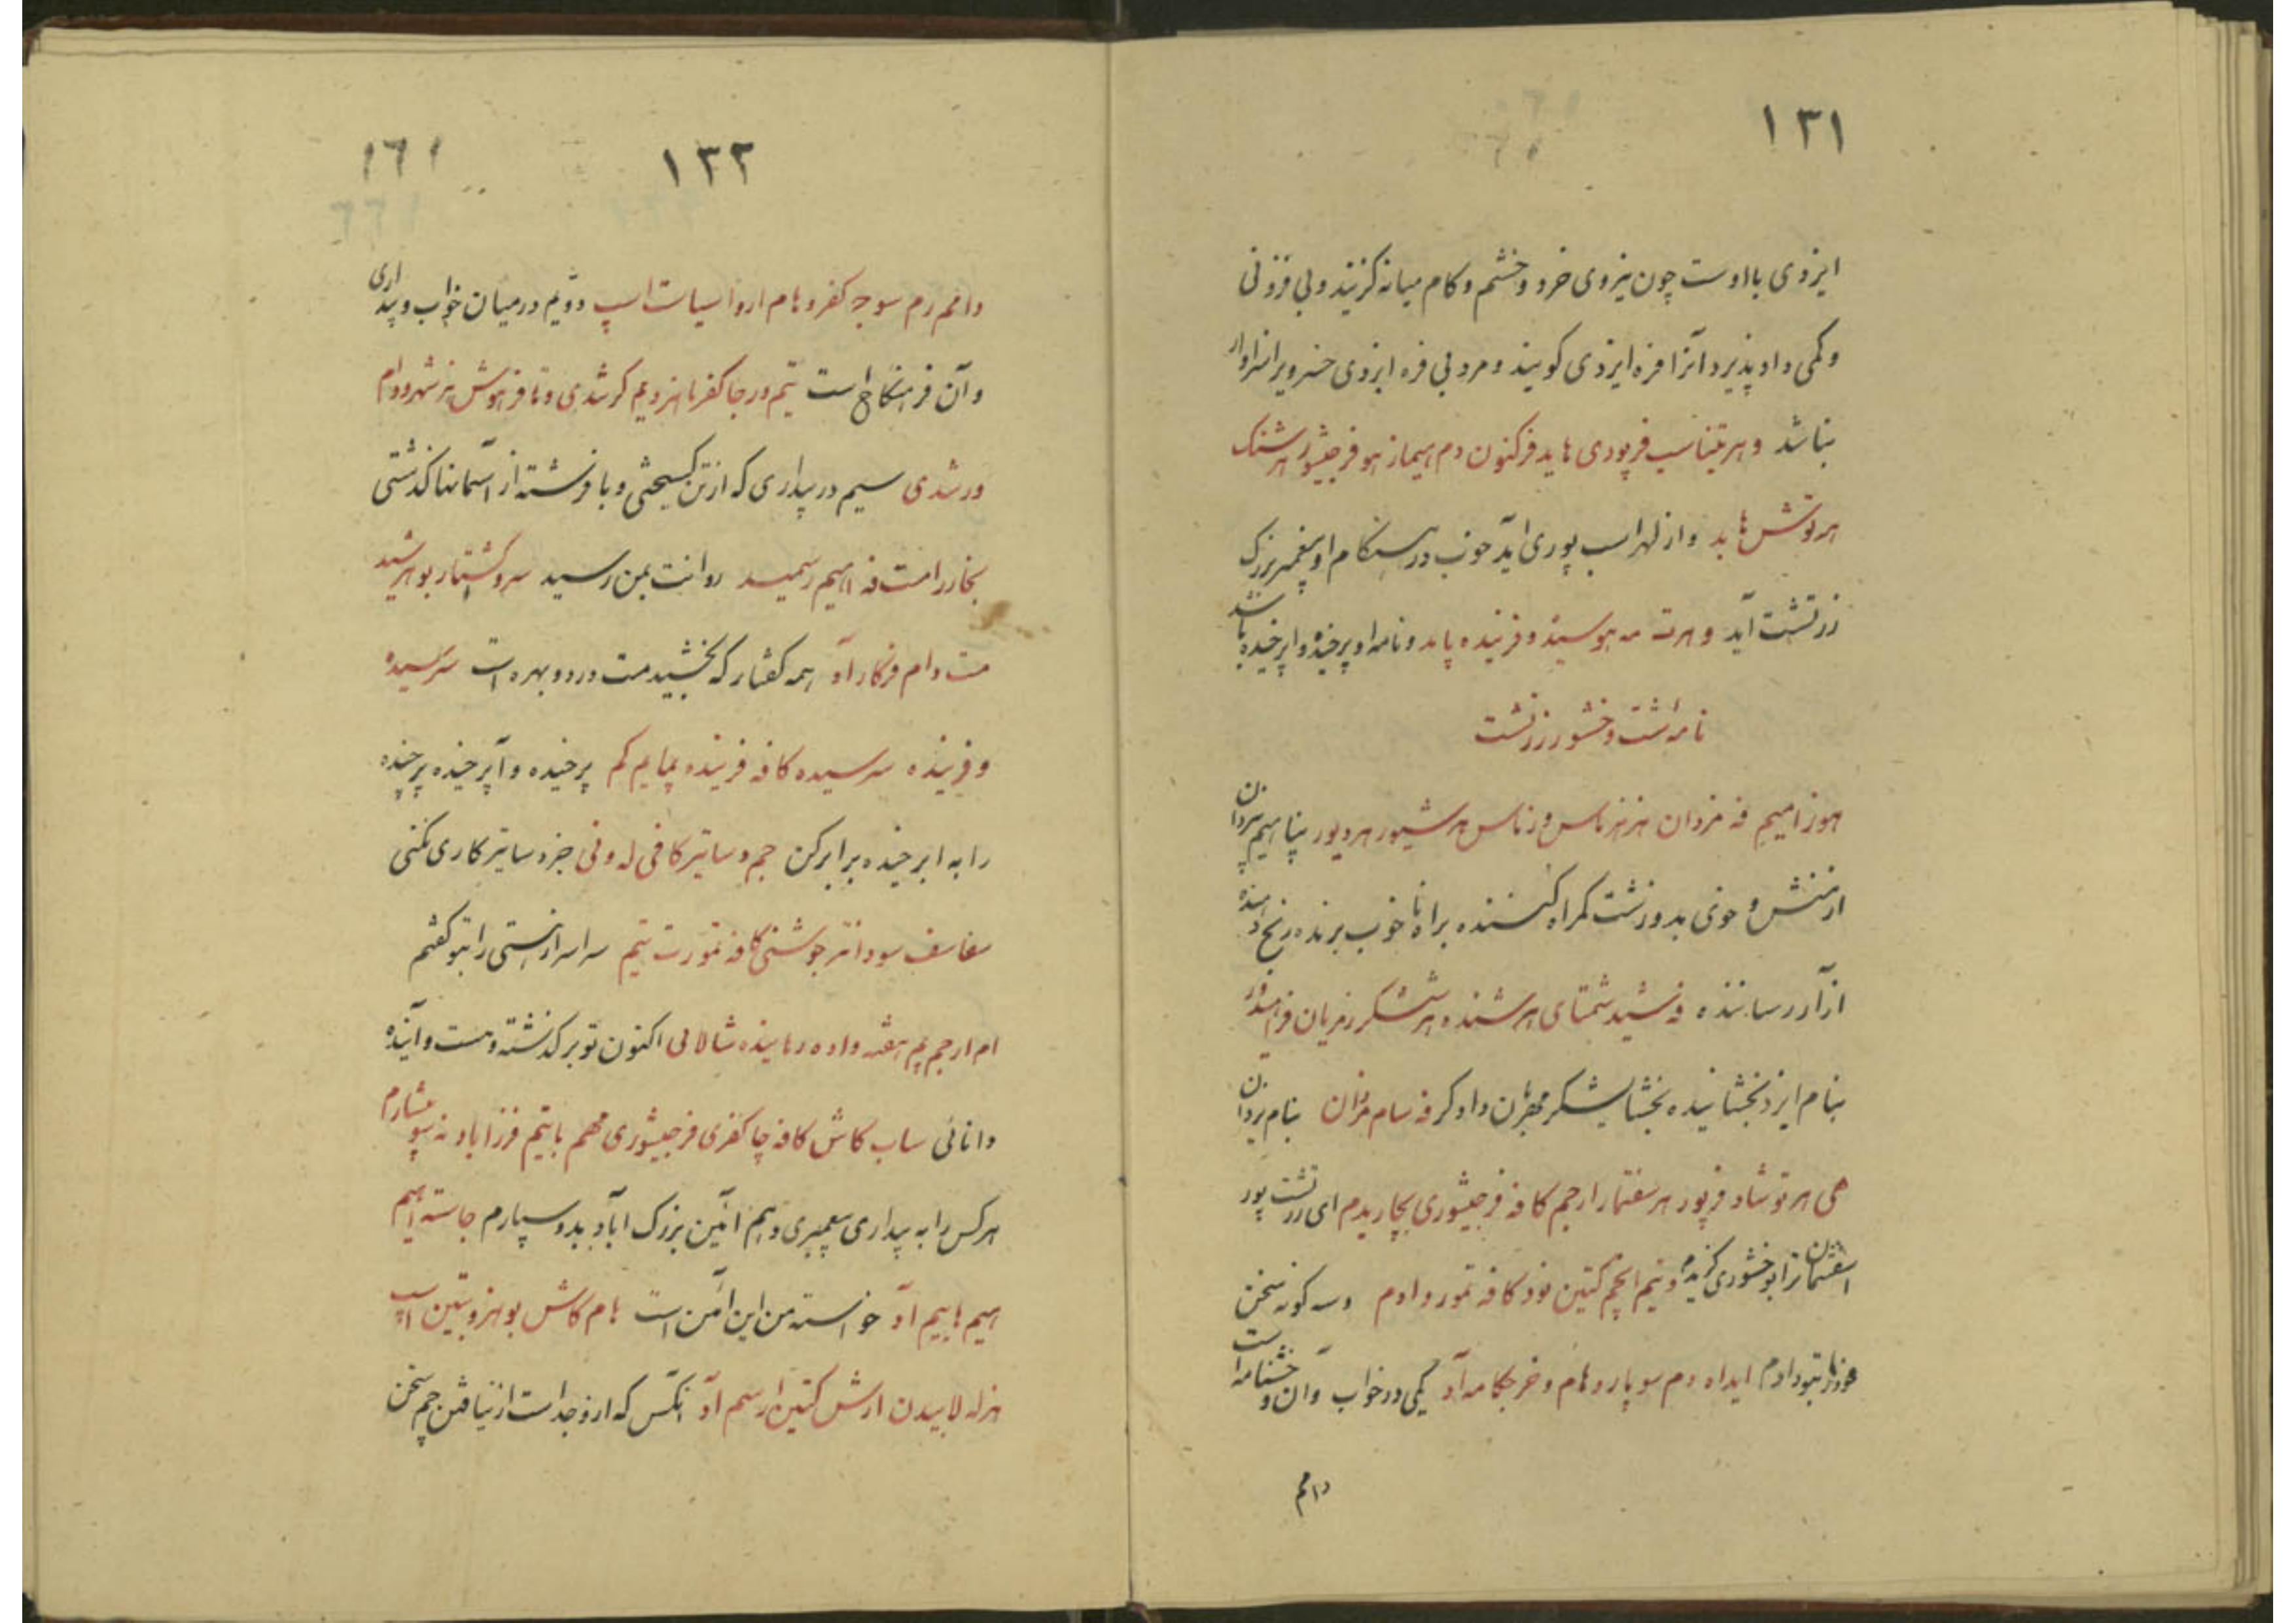 ۱۳۱
ایزدی با اوست چون نیروی خرد و خشم و کام میانه گزیند و بی فزونی
و کمی داد پذیرد آنرا فره ایزدی گویند و مرد بی فره ایزدی خسرویرا سزاوار
نباشد و هر تیناسپ فرپودی هاید فرکنون دم هیماز هو فرجیشور هرشنک
هرتوش هاید و از لهراسب پوری آید خوب در هنگام او پیغمبر بزرگ
زرتشت آید و هرته مه هو سیند و فرنیده پاید و نامه او پرخیده و اپرخیده باشد
نامه شت وخشور زرتشت
هوزامیم فه مزدان هزهزماس وزماس هرشیور هردیور پناهیم بیزدان
از منش و خوی بد و زشت گمراه کننده براه ناخوب برنده رنج دهنده
آزار رساننده فه شید شمتای هرشنده هرششگر زمرپان فراهیدور
بنام ایزد بخشاینده بخشایشگر مهربان دادگر فه نام مزدان بنام یزدان
هی هرتوشاد فرپور هرسفتمار ارجم کافه فرجیشوری بچاریدم ای زرتشت پور
اسفنتمان ترا بوخشوری گزیدم ونیم ایچم کتین نود کافه تمور و ادم و سه گونه سخن
خود را بتو دادم ایداه دم سو پار و هام و فرجکامه آد یکی در خواب و آن وخشنامه است
دامم
۱۳۲ ۱۶۱
دامم رم سوجه کفر و هام اروا سیات اسپ دوّیم در میان خواب و بیداری
و آن فرهنگاخ است تیم ور جا کفر تا هزدیم کرشدی و تا فرهوش پرشهر و دام
ورشدی سیم در بیداری که از تن گسیختی و با فرشته از آسمانها گذشتی
بخار رامت فه اهیم رسمید روانت بمن رسید سروگشتار بوهرشید
مت دام فرکار آد همه گفتار که بخشیدمت در دو بهره است سرسیده
و فرنیده سرسیده کافه فرنیده پمایم کم پرخیده و اپرخیده پرخیده
را به اپرخیده برابر کن جم دساتیر کافی له ونی جز دساتیر کاری نکنی
سفاسف سودانتر جوشنی کافه تمورت تیم سراسر راستی را بتو گفتم
ام ارجم یم هقه واده رماینده شالالی اکنون تو بر گذشته و هست و آینده
دانائی ساب کاش کافه چا کفری فرجیشوری مهم بایتم فرزاباد نه سو عشارم
هرکس را به بیداری پیغمبری دهم آئین بزرگ آباد بدو سپارم جاسته اهیم
اهیم هاییم آد خواسته من این آئین است هام کاش بوهزو تین اسپ
هزله لابیدن ارش کتین ارسم آد آنکس که ازو جداست از نیافتن چم سخن